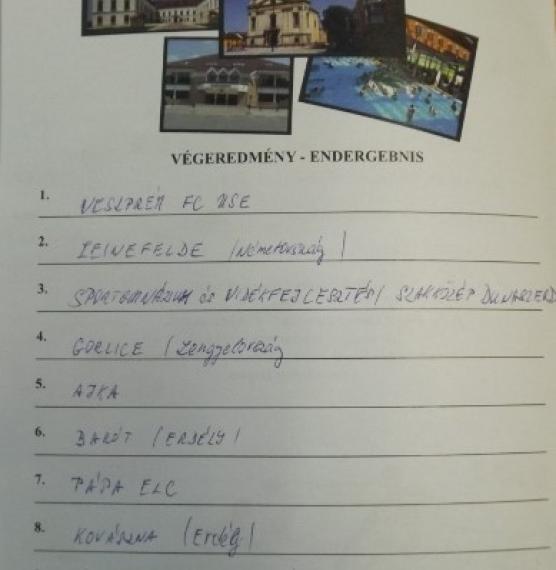 VÉGEREDMÉNY - ENDERGEBNIS
1. VESZPRÉM FC USE
2. LEINEFELDE /Németország/
3. SPORTGIMNÁZIUM és VIDÉKFEJLESZTÉSI SZAKKÖZÉP DUNASZERD
4. GORLICE /Lengyelország
5. AJKA
6. BARÓT /ERDÉLY/
7. PÁPA ELC
8. KOVÁSZNA /Erdély/